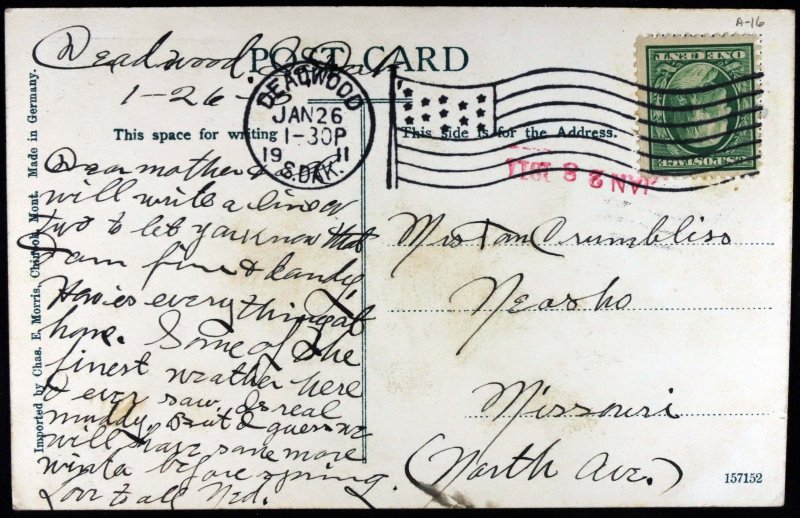 A-16
POST CARD
Deadwood, S. Dak
1-26-
DEADWOOD
JAN 26
1-30P
19 11
S. DAK.
This space for writing
This side is for the Address.
Made in Germany.
Imported by Chas. E. Morris, Chinook, Mont.
U.S. POSTAGE
ONE CENT
JAN 28 1911
Dear mother &
will write a line or
two to let you know that
I am fine & dandy.
How is everything at
home. Some of the
finest weather here
I ever saw. Is real
muddy. But I guess we
will have some more
winter before spring.
Love to all Ned.
Mrs Crumbliss
Neosho
Missouri
(North Ave.)
157152